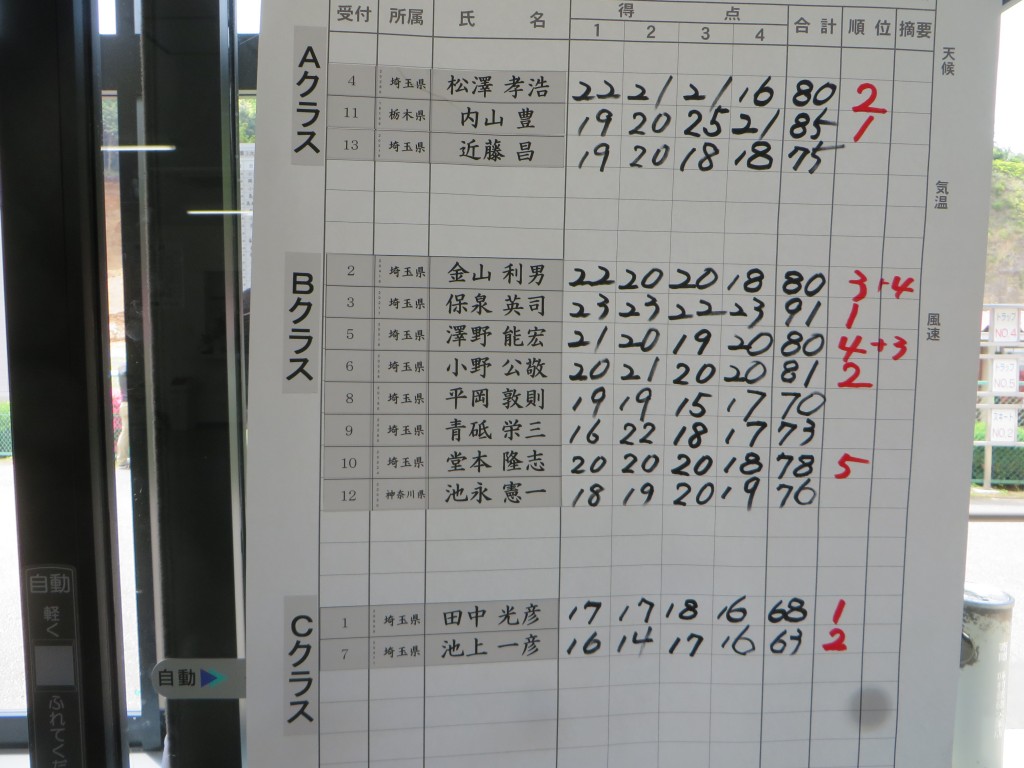 受付 所属 氏 名 得 点 合 計 順 位 摘要
1 2 3 4
天候
Aクラス
4 埼玉県 松澤 孝浩 22 21 21 16 80 2
11 栃木県 内山 豊 19 20 25 21 85 1
13 埼玉県 近藤 昌 19 20 18 18 75
気温
Bクラス
2 埼玉県 金山 利男 22 20 20 18 80 3 +4
3 埼玉県 保泉 英司 23 23 22 23 91 1
風速
5 埼玉県 澤野 能宏 21 20 19 20 80 4 +3
6 埼玉県 小野 公敬 20 21 20 20 81 2
8 埼玉県 平岡 敦則 19 19 15 17 70
9 埼玉県 青砥 栄三 16 22 18 17 73
10 埼玉県 堂本 隆志 20 20 20 18 78 5
12 神奈川県 池永 憲一 18 19 20 19 76
Cクラス
1 埼玉県 田中 光彦 17 17 18 16 68 1
7 埼玉県 池上 一彦 16 14 17 16 63 2
自動
軽く
ふれてくだ
自動
トラップ
NO.4
トラップ
NO.5
NO.2